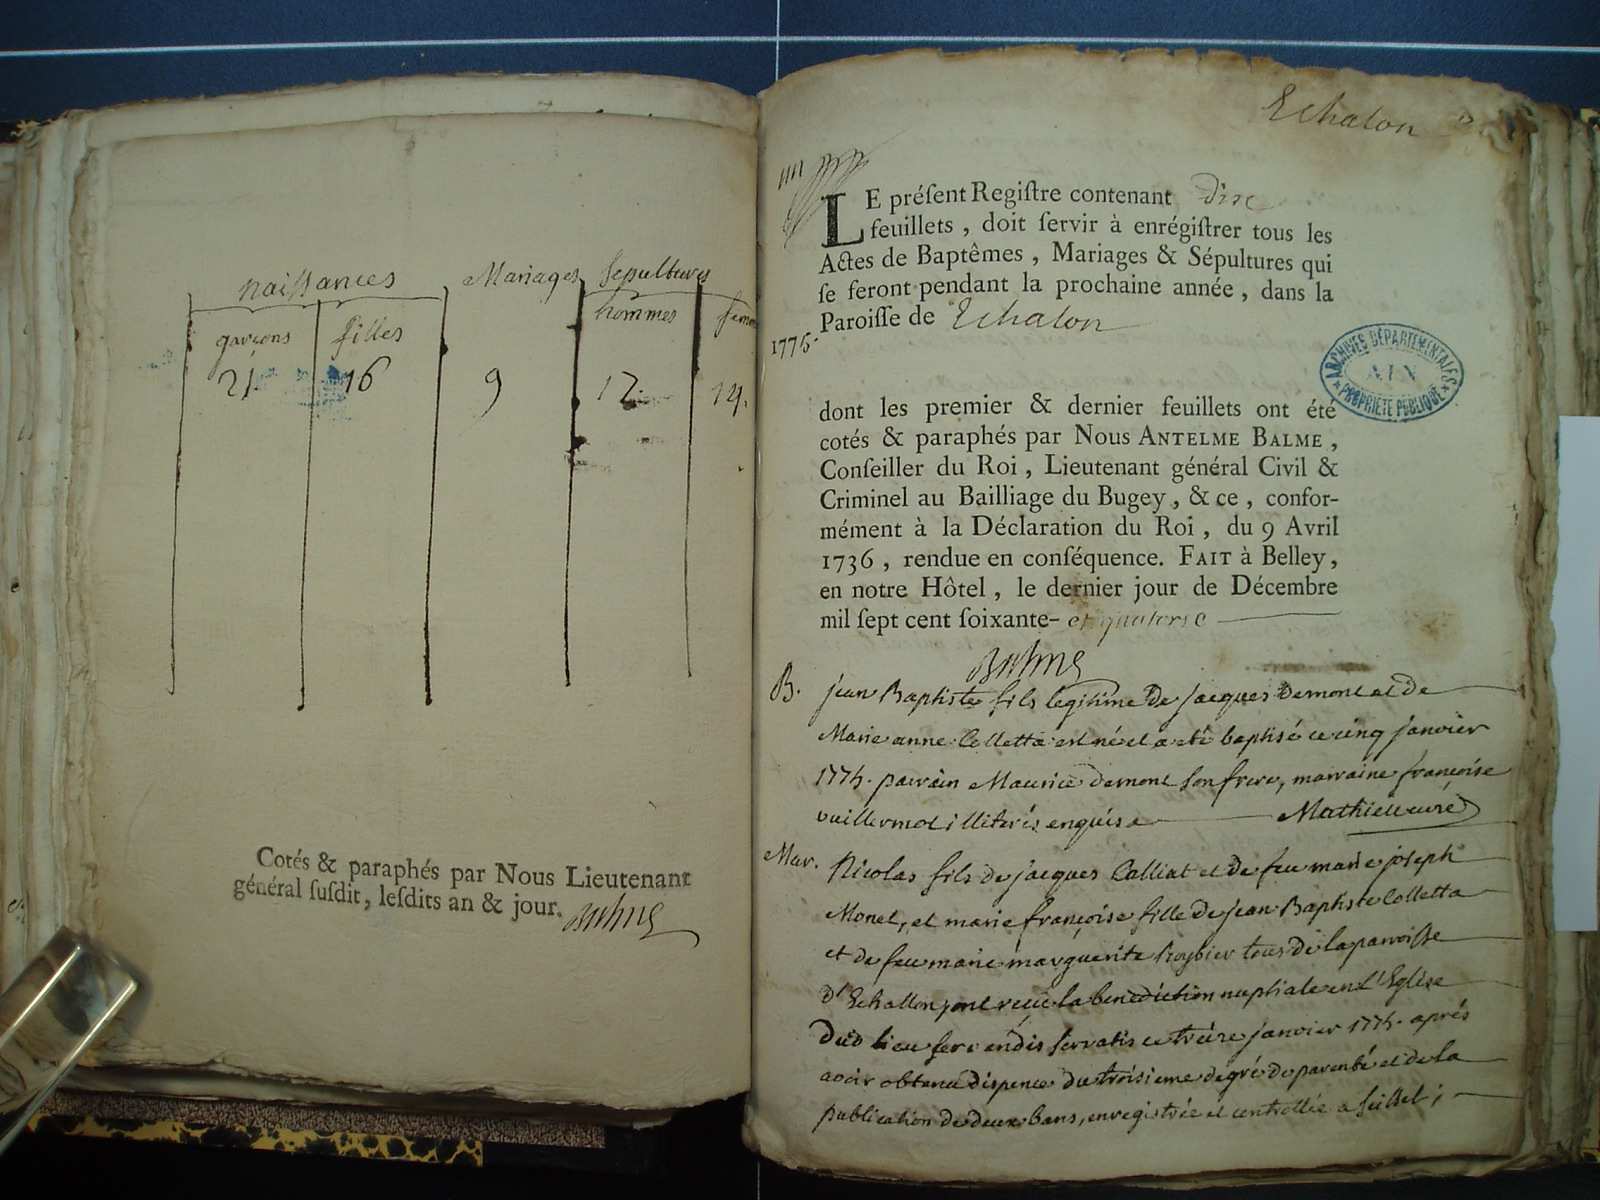 naissances Mariages Sepultures
garçons filles hommes
21 16 9 12 14.
Cotés & paraphés par Nous Lieutenant
général ſuſdit, leſdits an & jour.
Balme
Echalon
LE préſent Regiſtre contenant dix
feuillets, doit ſervir à enrégiſtrer tous les
Actes de Baptêmes, Mariages & Sépultures qui
ſe feront pendant la prochaine année, dans la
Paroiſſe de Echalon
1775.
ARCHIVES DÉPARTEMENTALES
AIN
PROPRIÉTÉ PUBLIQUE
dont les premier & dernier feuillets ont été
cotés & paraphés par Nous ANTELME BALME,
Conſeiller du Roi, Lieutenant général Civil &
Criminel au Bailliage du Bugey, & ce, confor-
mément à la Déclaration du Roi, du 9 Avril
1736, rendue en conſéquence. FAIT à Belley,
en notre Hôtel, le dernier jour de Décembre
mil ſept cent ſoixante- et quatorse
Balme
B. jean Baptiste fils legitime de jacques Demont et de
Marie anne Colletta est né et a eté baptisé ce cinq janvier
1775. parrain Maurice demont son frere, marraine françoise
vuillermot illiterés enquis Mathieu curé
Mar. Nicolas fils de jacques Calliat et de feu marie joseph
Monet, et marie françoise fille de jean Baptiste Colletta
et de feu marie marguerite Roybier tous de la paroisse
d'Echallon, ont reçu la benediction nuptiale en l'Eglise
Dud lieu servandis servatis ce treize janvier 1775. aprés
avoir obtenu dispence du troisieme degré de parenté et de la
publication de deux bans, enregistrée et controllée a seissel;